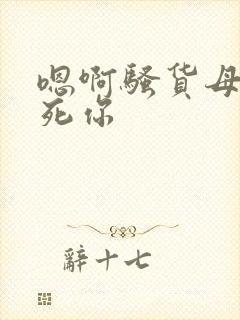 嗯啊骚货母
死你
辭十七